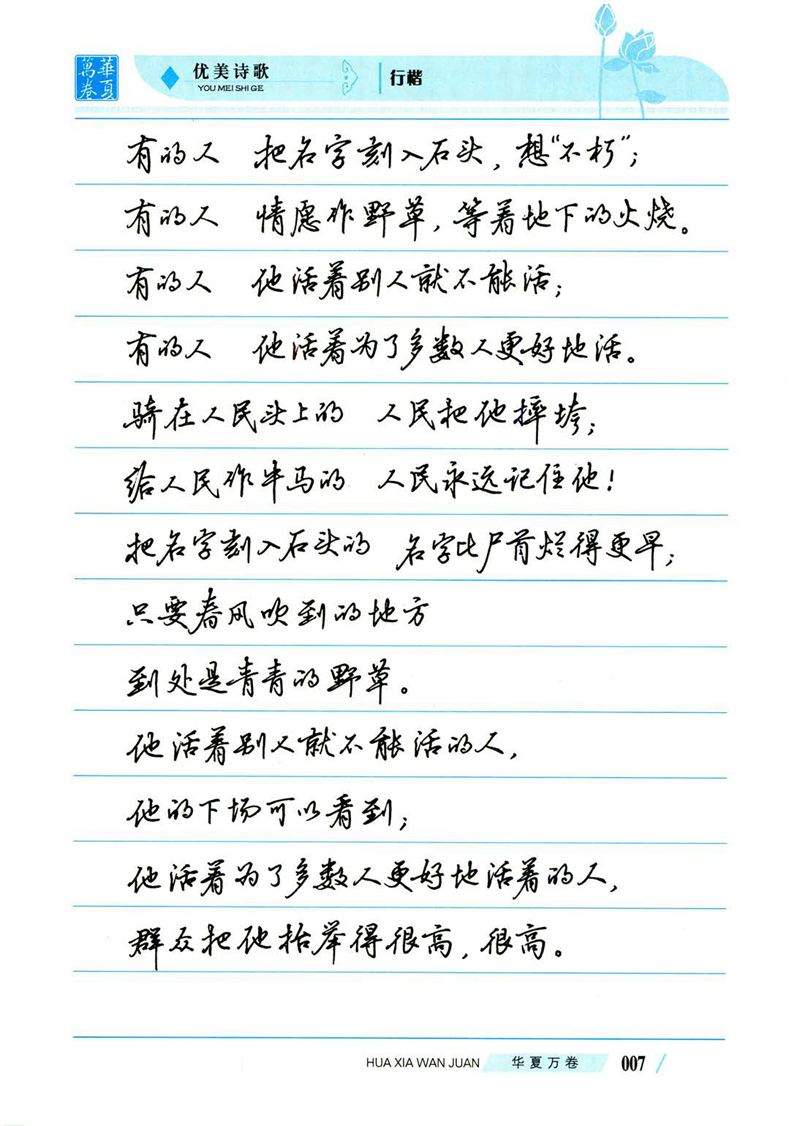 華夏
萬卷
优美诗歌
YOU MEI SHI GE
行楷
有的人 把名字刻入石头，想“不朽”；
有的人 情愿作野草，等着地下的火烧。
有的人 他活着别人就不能活；
有的人 他活着为了多数人更好地活。
骑在人民头上的 人民把他摔垮；
给人民作牛马的 人民永远记住他！
把名字刻入石头的 名字比尸首烂得更早；
只要春风吹到的地方
到处是青青的野草。
他活着别人就不能活的人，
他的下场可以看到；
他活着为了多数人更好地活着的人，
群众把他抬举得很高，很高。
HUA XIA WAN JUAN 华夏万卷 007